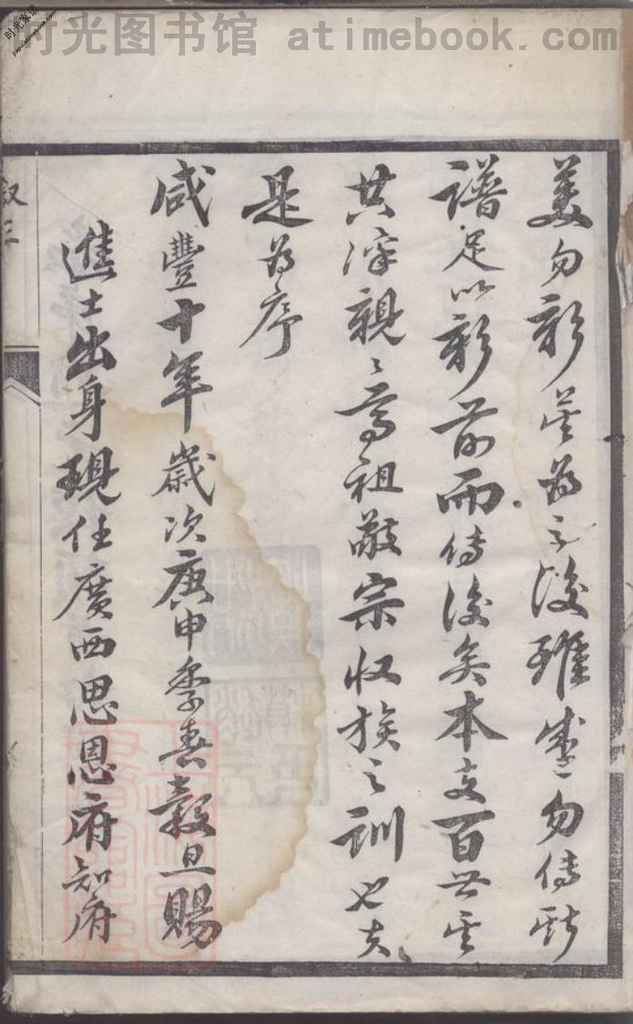 时光图书馆 atimebook.com
美勿彰莫為之後雖盛勿傳斯
譜足以彰前而傳後矣本支百世云
其深親親尊祖敬宗收族之訓也夫
是為序
咸豐十年歲次庚申季春穀旦賜
進士出身現任廣西思恩府知府
叙三